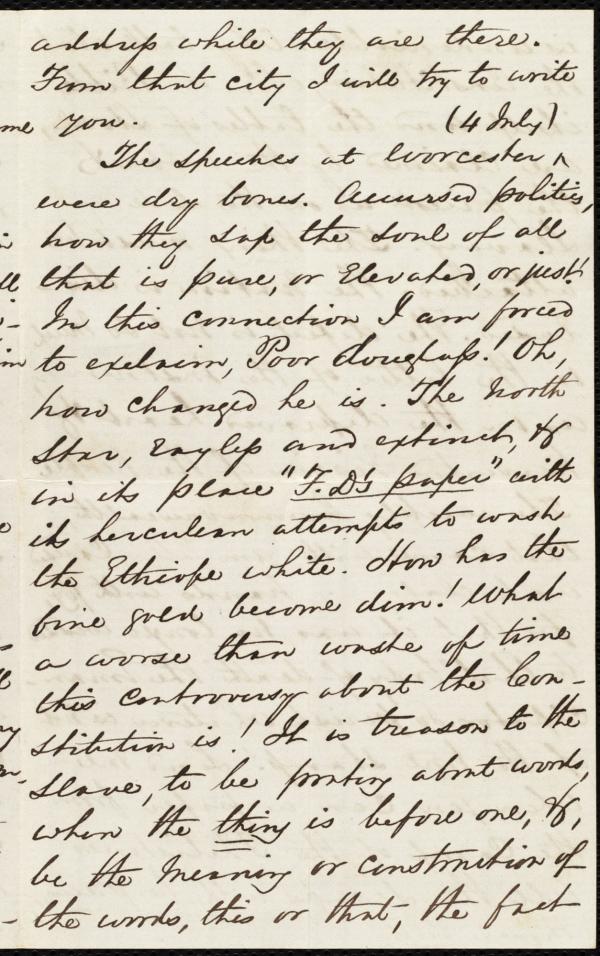 address while they are there.
From that city I will try to write
me you. (4 July)
The speeches at Worcester ^
were dry bones. Accursed politics,
how they sap the soul of all
that is pure, or elevated, or just!
In this connection I am forced
to exclaim, Poor Douglass! Oh,
how changed he is. The North
Star, rayless and extinct, &
in its place "F. D's paper" with
its herculean attempts to wash
the Ethiope white. How has the
fine gold become dim! What
a worse than waste of time
this controversy about the Con-
stitution is! It is treason to the
slave, to be prating about words,
when the thing is before one, &,
be the meaning or construction of
the words, this or that, the fact